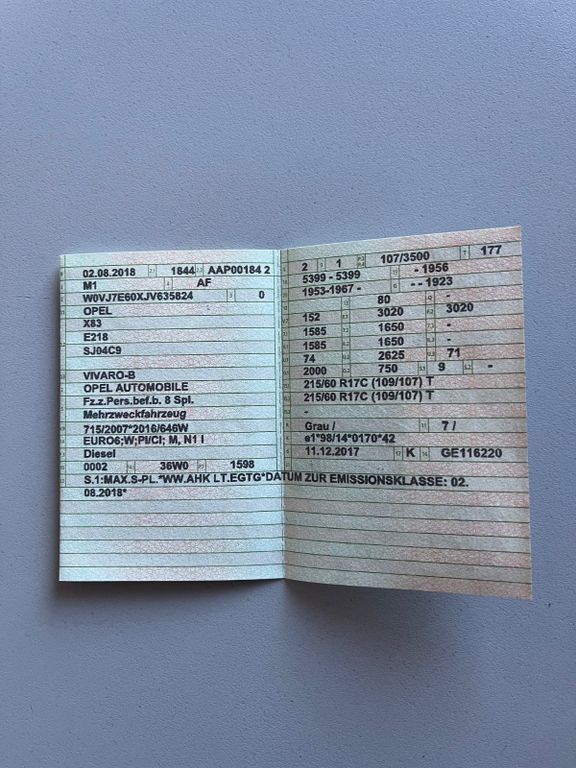 02.08.2018 1844 AAP00184 2
M1 AF
W0VJ7E60XJV635824 0
OPEL
X83
E218
SJ04C9
VIVARO-B
OPEL AUTOMOBILE
Fz.z.Pers.bef.b. 8 Spl.
Mehrzweckfahrzeug
715/2007*2016/646W
EURO6;W;PI/CI; M, N1 I
Diesel
0002 36W0 1598
2 1 107/3500 177
5399 - 5399 - 1956
1953-1967 - - - 1923
80 -
152 3020 3020
1585 1650 -
1585 1650 -
74 2625 71
2000 750 9 -
215/60 R17C (109/107) T
215/60 R17C (109/107) T
-
Grau / 7 /
e1*98/14*0170*42
11.12.2017 K GE116220
S.1:MAX.S-PL.*WW.AHK LT.EGTG*DATUM ZUR EMISSIONSKLASSE: 02.
08.2018*